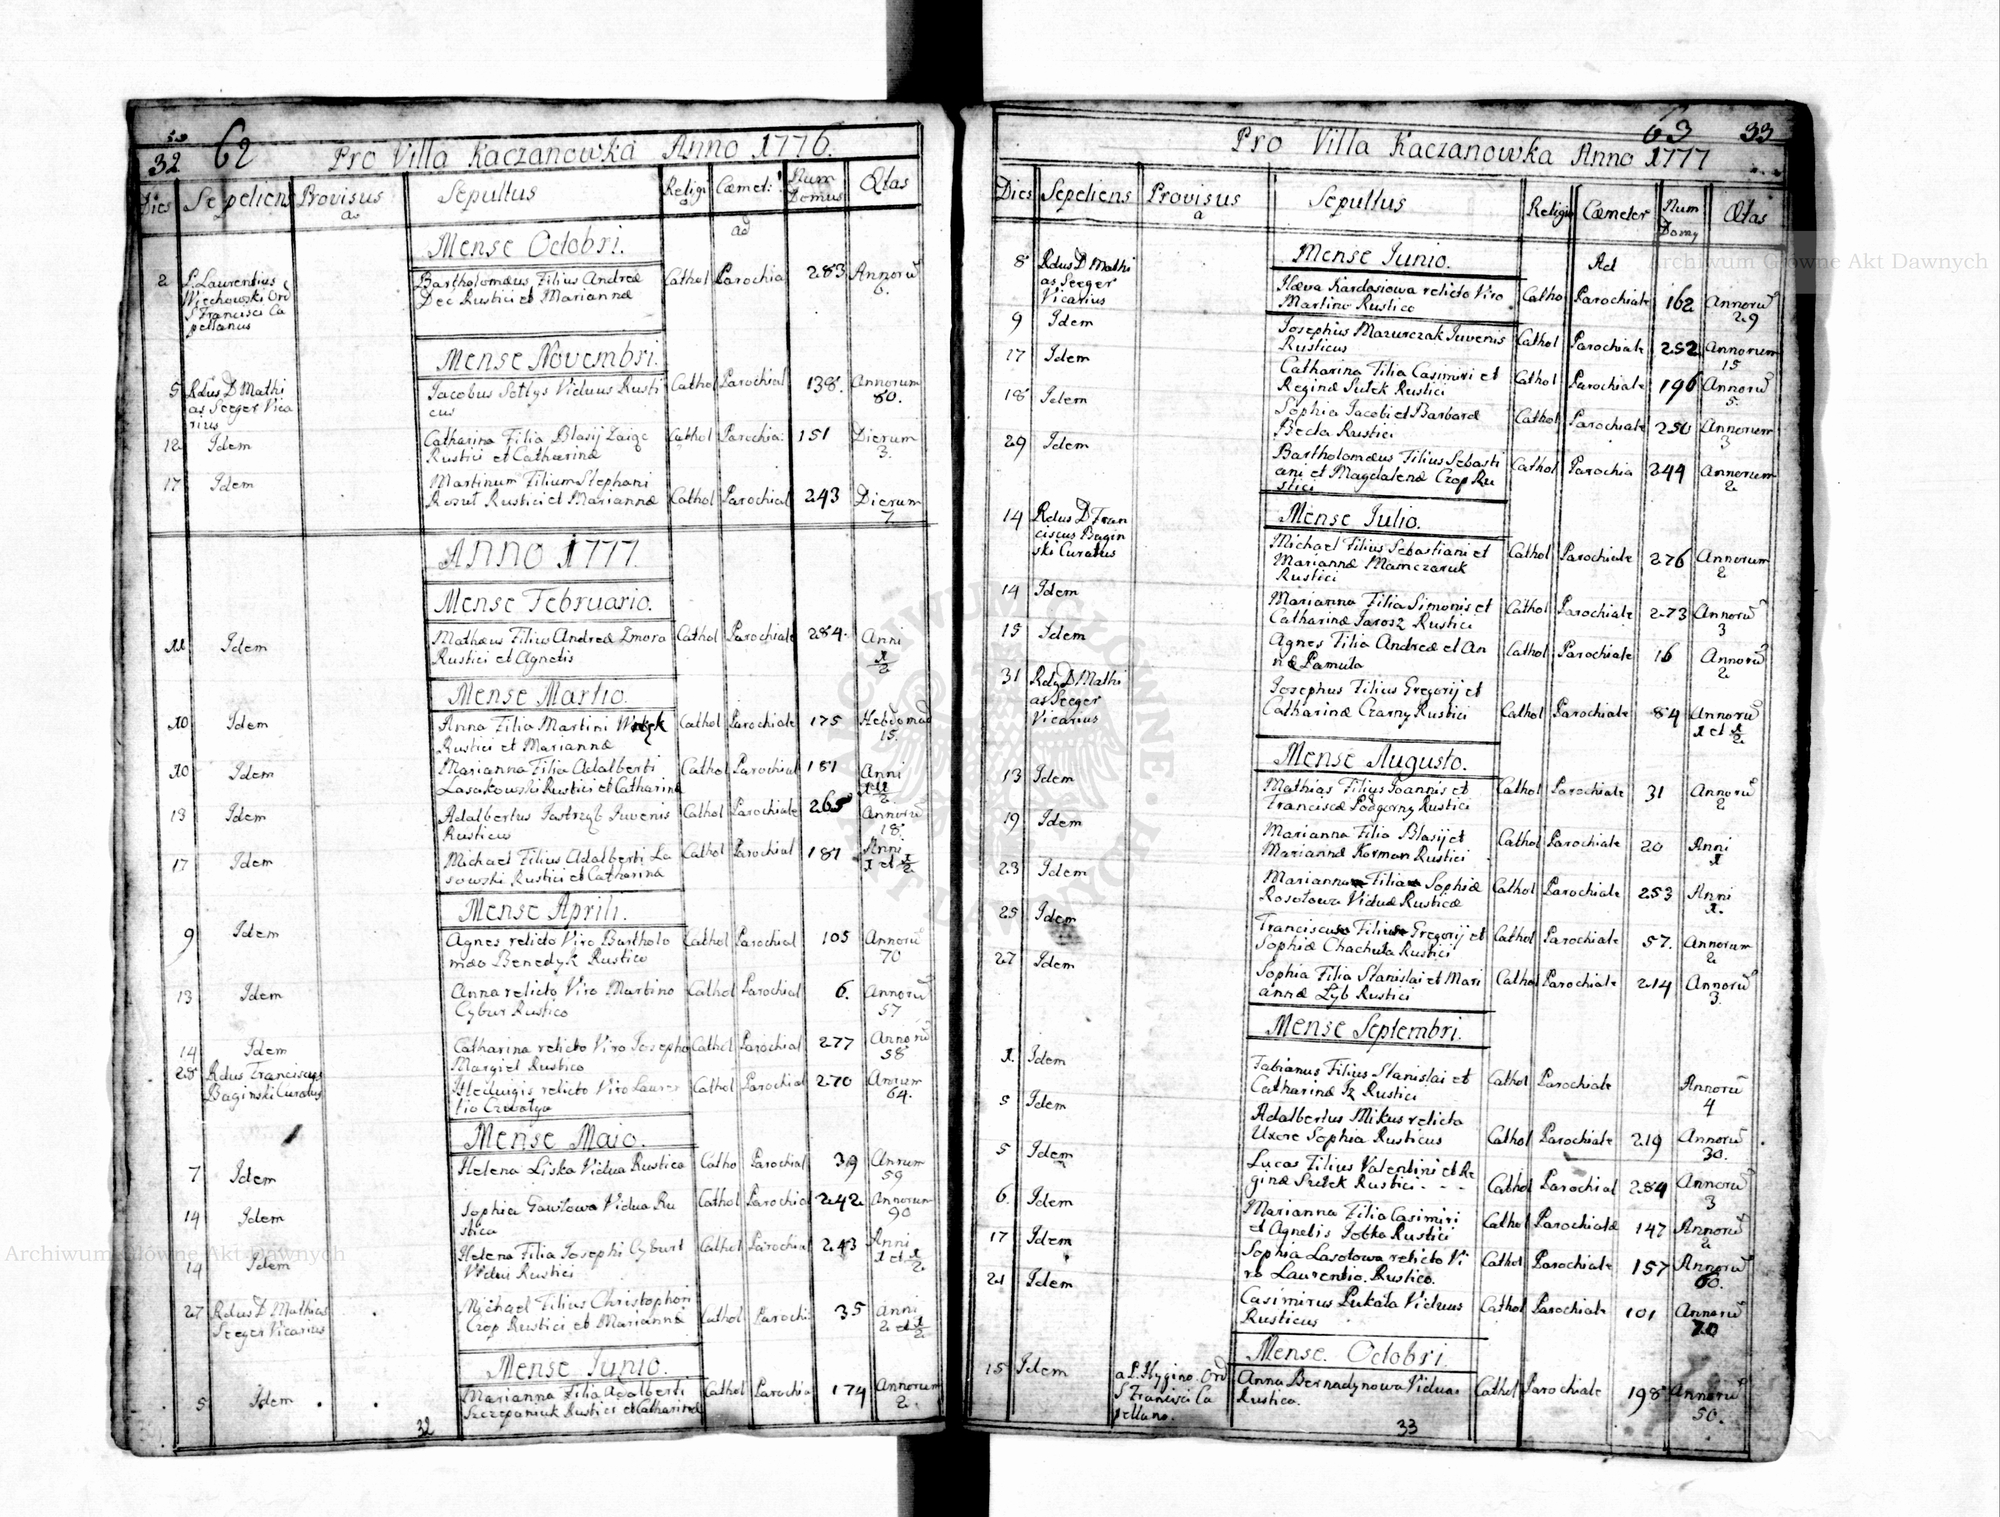 50
32 62 Pro Villa Kaczanowka Anno 1776.
Dies Sepeliens Provisus as Sepultus Religi Cæmet: Num Domus Ætas
a ad
Mense Octobri.
2 P. Laurentius Bartholomæus Filius Andreæ Cathol Parochia 283 Annorū
Wiechowski Ord Dec Rustici et Mariannæ 6.
S Francisci Ca
pellanus
Mense Novembri.
5 Rdus D Mathi Jacobus Soltys Viduus Rusti Cathol Parochial 138. Annorum
as Seeger Vica cus 80.
rius
12 Idem Catharina Filia Blasij Zaigc Cathol Parochia: 151 Dierum
Rustici et Catharinæ 3.
17 Idem Martinum Filium Stephani
Roszut Rustici et Mariannæ Cathol Parochial 243 Dierum
7
ANNO 1777.
Mense Februario.
11 Idem Mathæus Filius Andreæ Zmora Cathol Parochiale 284. Anni
Rustici et Agnetis 1/2
Mense Martio.
10 Idem Anna Filia Martini Cathol Parochiale 175 Hebdomad
Rustici et Mariannæ 15.
10 Idem Marianna Filia Adalberti Cathol Parochial 181 Anni
Lasakowski Rustici et Catharinæ
13 Idem Adalbertus Jastrząb Juvenis Cathol Parochiale 265 Annorū
Rusticus 18.
17 Idem Michael Filius Adalberti La Cathol Parochial 181 Anni
sowski Rustici et Catharinæ 1 et 1/2
Mense Aprili.
9 Idem Agnes relicto Viro Bartholo Cathol Parochial 105 Annorū
mæo Benedyk Rustico 70
13 Idem Anna relicto Viro Martino Cathol Parochial 6. Annorū
Cybur Rustico 57
14 Idem Catharina relicto Viro Josepho Cathol Parochial 277 Annorū
Margiel Rustico 58
28 Rdus Franciscus Hedwigis relicto Viro Lauren Cathol Parochial 270 Annum
Baginski Curatus tio 64.
Mense Majo.
7 Idem Helena Liska Vidua Rustica Catho Parochial 39 Annum
59
14 Idem Sophia Gawlowa Vidua Ru Cathol Parochial 242. Annorum
stica 90
14 Idem Helena Filia Josephi Cyburt Cathol Parochial 243 Anni
Vidui Rustici 1 et 1/2
27 Rdus D Mathias Michael Filius Christophori Cathol Parochi 35 Anni
Seeger Vicarius Czop Rustici et Mariannæ 2 et 1/2
Mense Junio.
5 Idem Marianna Filia Adalberti Cathol Parochia 174 Annorum
Szczepaniuk Rustici et Catharinæ 2.
32
63 33
Pro Villa Kaczanowka Anno 1777
Dies Sepeliens Provisus a Sepultus Religi Cæmeter Num Domy Ætas
Mense Junio. Ad
8 Rdus D Mathi Hæva Kardasiowa relicto Viro Catho Parochiale 162 Annorū
as Seeger Martino Rustico 29
Vicarius
9 Idem Josephus Mazurczak Juvenis Cathol Parochiale 252 Annorum
Rusticus 15
17 Idem Catharina Filia Casimiri et Cathol Parochiale 196 Annorū
Reginæ Sułek Rustici 5.
18 Idem Sophia Jacobi et Barbaræ Cathol Parochiale 250 Annorum
Becla Rustici 3
29 Idem Bartholomæus Filius Sebasti Cathol Parochia 244 Annorum
ani et Magdalenæ Czop Ru 2
stici
Mense Julio.
14 Rdus D Fran Michael Filius Sebastiani et Cathol Parochiale 276 Annorum
ciscus Bagin Mariannæ Mamczaruk 2
ski Curatus Rustici
14 Idem Marianna Filia Simonis et Cathol Parochiale 273 Annorū
Catharinæ Jarosz Rustici 3
15 Idem Agnes Filia Andreæ et An Cathol Parochiale 16 Annorū
næ Pamuła 2
31 Rdus D Mathi Josephus Filius Gregorij et
as Seeger Catharinæ Czarny Rustici Cathol Parochiale 84 Annorū
Vicarius 1 et 1/2
Mense Augusto.
13 Idem Mathias Filius Joannis et Cathol Parochiale 31 Annorū
Franciscæ Podgorny Rustici 2
19 Idem Marianna Filia Blasij et Cathol Parochiale 20 Anni
Mariannæ Korman Rustici 1
23 Idem Marianna Filia Sophiæ Cathol Parochiale 253 Anni
Rosołowa Viduæ Rusticæ 1.
25 Idem Franciscus Filius Gregorij et Cathol Parochiale 57. Annorum
Sophiæ Chachuła Rustici 2
27 Idem Sophia Filia Stanislai et Mari Cathol Parochiale 214 Annorū
annæ Lyb Rustici 3.
Mense Septembri.
1. Idem Fabianus Filius Stanislai et Cathol Parochiale Annorū
Catharinæ Iz Rustici 4
5 Idem Adalbertus Mikus relicta
Uxore Sophia Rusticus Cathol Parochiale 219 Annorū
30.
5 Idem Lucas Filius Valentini et Re Cathol Parochial 284 Annorū
ginæ Sułek Rustici. - - 3
6. Idem Marianna Filia Casimiri Cathol Parochialæ 147 Annorū
et Agnetis Sobka Rustici 2
17 Idem Sophia Lasotowa relicto Vi Cathol Parochiale 157 Annorū
ro Laurentio. Rustico. 60.
21 Idem Casimirus Pukała Viduus Cathol Parochiale 101 Annorū
Rusticus 70
Mense. Octobri.
15 Idem a P. Hygino. Ord Anna Bernadynowa Vidua Cathol Parochiale 198 Annorū
S Francisci Ca Rustica. 50.
pellano.
33
Archiwum Główne Akt Dawnych
Archiwum Główne Akt Dawnych